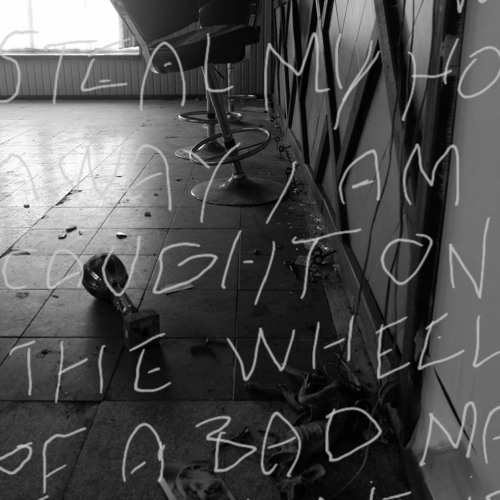 STEAL MY HO
AWAY I AM
CAUGHT ON
THE WHEEL
OF A BAD MA